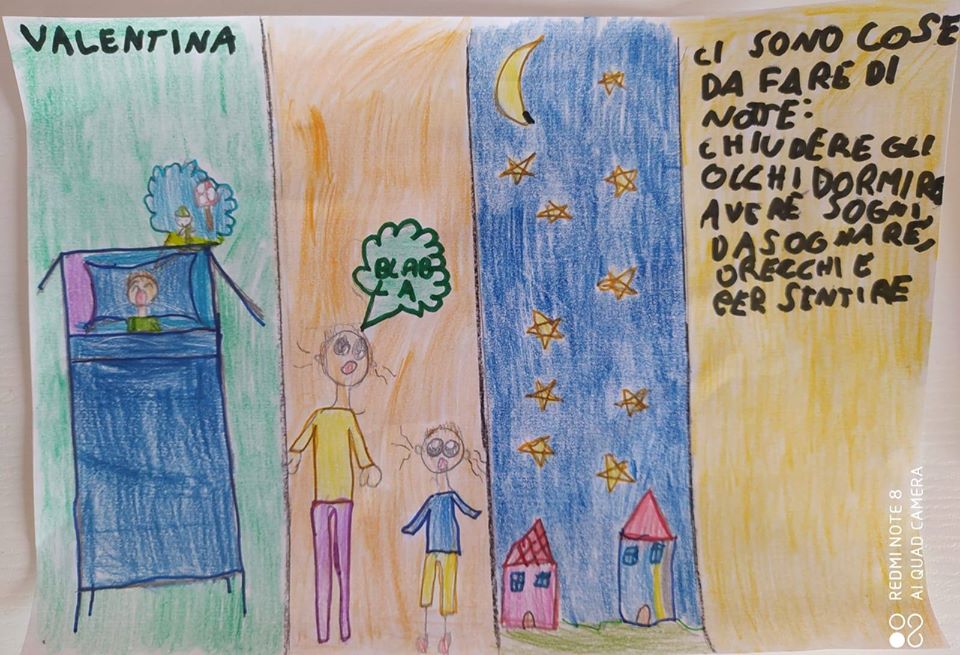 VALENTINA
BLABL
A
CI SONO COSE
DA FARE DI
NOTTE:
CHIUDERE GLI
OCCHI DORMIRE
AVERE SOGNI,
DA SOGNARE,
ORECCHIE
PER SENTIRE
REDMI NOTE 8
AI QUAD CAMERA